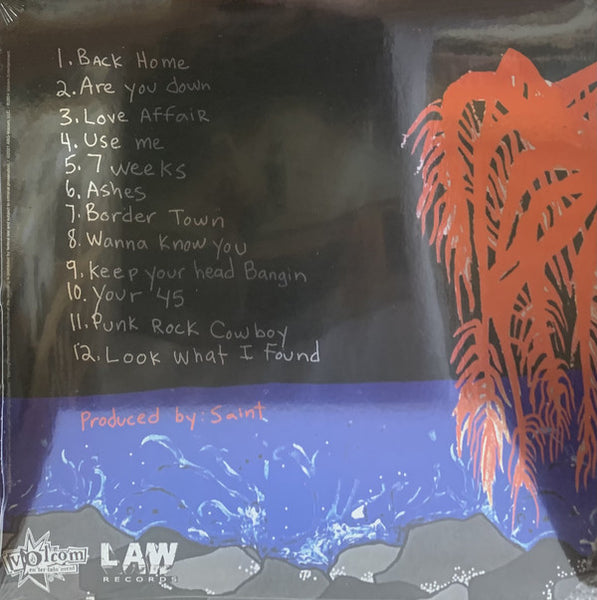 1. Back Home
2. Are you down
3. Love Affair
4. Use me
5. 7 weeks
6. Ashes
7. Border Town
8. Wanna Know you
9. Keep your head Bangin
10. Your '45
11. Punk Rock Cowboy
12. Look What I Found
Produced by: Saint
Volcom
en·ter·tain·ment
LAW
RECORDS